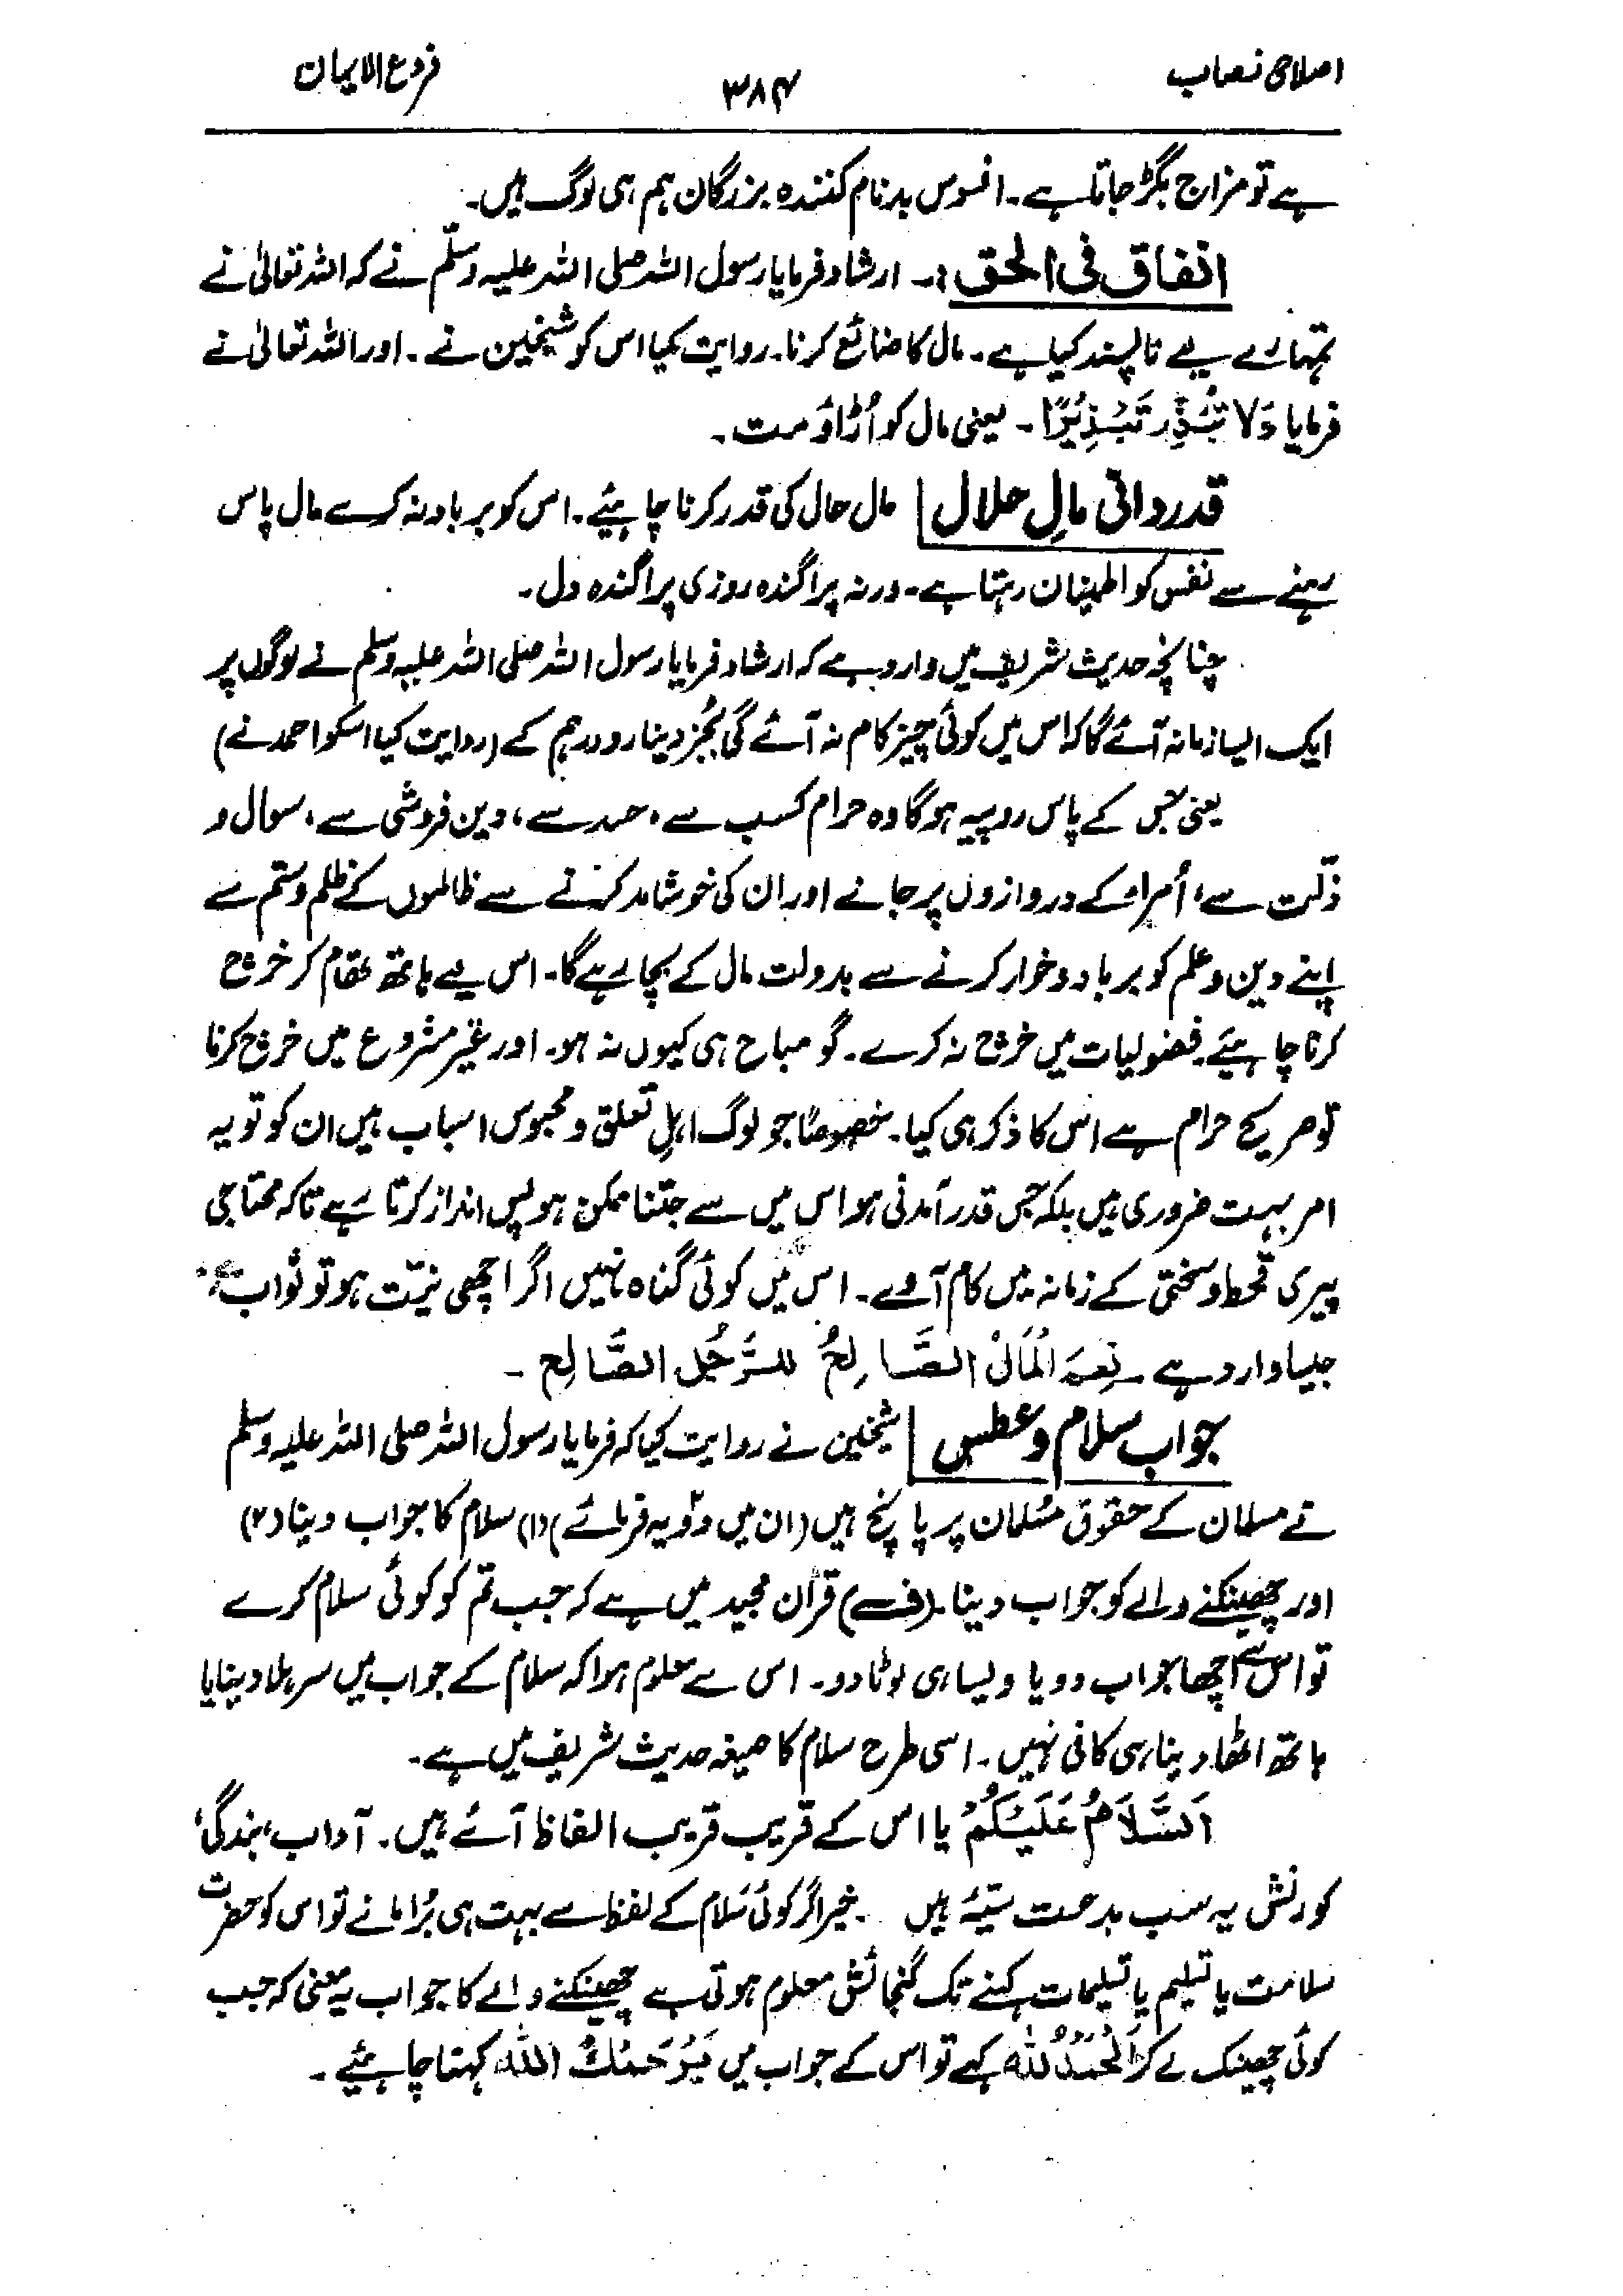 اصلاحی نصاب
۳۸۴
فروع الایمان
ہے تو مزاج بگڑ جاتا ہے۔ افسوس بدنام کنندہ بزرگان ہم ہی لوگ ہیں۔
انفاق فی الحق :۔ ارشاد فرمایا رسول اللہ صلی اللہ علیہ وسلّم نے کہ اللہ تعالیٰ نے
تمہارے لیے ناپسند کیا ہے۔ مال کا ضائع کرنا۔ روایت کیا اس کو شیخین نے۔ اور اللہ تعالیٰ نے
فرمایا وَلَا تُبَذِّرْ تَبْذِيْرًا۔ یعنی مال کو اُڑاؤ مت۔
قدر دانی مالِ حلال | مال حال کی قدر کرنا چاہئیے۔ اس کو برباد نہ کرے مال پاس
رہنے سے نفس کو اطمینان رہتا ہے۔ ورنہ پراگندہ روزی پراگندہ دل۔
چنانچہ حدیث شریف میں وارد ہے کہ ارشاد فرمایا رسول اللہ صلی اللہ علیہ وسلم نے لوگوں پر
ایک ایسا زمانہ آئے گا کہ اس میں کوئی چیز کام نہ آئے گی بجُز دینار و درہم کے (روایت کیا اسکو احمد نے)
یعنی جس کے پاس روپیہ ہوگا وہ حرام کسب سے، حسد سے، دین فروشی سے، سوال و
ذلّت سے، اُمراء کے دروازوں پر جانے اور ان کی خوشامد کرنے سے ظالموں کے ظلم و ستم سے
اپنے دین و علم کو برباد و خوار کرنے سے بدولت مال کے بچا رہے گا۔ اس لیے ہاتھ تھام کر خرچ
کرنا چاہئیے۔ فضولیات میں خرچ نہ کرے۔ گو مباح ہی کیوں نہ ہو۔ اور غیر مشروع میں خرچ کرنا
تو صریح حرام ہے اس کا ذکر ہی کیا۔ خصوصًا جو لوگ اہلِ تعلق و محبوس اسباب ہیں ان کو تو یہ
امر بہت ضروری ہیں بلکہ جس قدر آمدنی ہو اس میں سے جتنا ممکن ہو پس انداز کرتا رہے تاکہ محتاجی
پیری قحط و سختی کے زمانہ میں کام آوے۔ اس میں کوئی گناہ نہیں اگر اچھی نیّت ہو تو ثواب ہے
جیسا وارد ہے۔ نِعْمَ الْمَالُ الصَّالِحُ لِلرَّجُلِ الصَّالِحِ۔
جواب سلام و عطس | شیخین نے روایت کیا کہ فرمایا رسول اللہ صلی اللہ علیہ وسلم
نے مسلمان کے حقوق مُسلمان پر پانچ ہیں (ان میں دو یہ فرمائے) (۱) سلام کا جواب دینا (۲)
اور چھینکنے والے کو جواب دینا۔ (ف) قرآن مجید میں ہے کہ جب تم کو کوئی سلام کرے
تو اس سے اچھا جواب دو یا ویسا ہی لوٹا دو۔ اس سے معلوم ہوا کہ سلام کے جواب میں سر ہلا دینا یا
ہاتھ اٹھا دینا ہی کافی نہیں۔ اسی طرح سلام کا صیغہ حدیث شریف میں ہے۔
اَلسَّلَامُ عَلَيْكُمْ یا اس کے قریب قریب الفاظ آئے ہیں۔ آداب، بندگی،
کورنش یہ سب بدعت سیّئہ ہیں۔ خیر اگر کوئی سلام کے لفظ سے بہت ہی بُرا مانے تو اس کو حضرت
سلامت یا تسلیم یا تسلیمات کہنے تک گنجائش معلوم ہوتی ہے چھینکنے والے کا جواب یہ معنی کہ جب
کوئی چھینک لے کر اَلْحَمْدُ لِلّٰهِ کہے تو اس کے جواب میں يَرْحَمُكَ اللّٰه کہنا چاہئیے۔